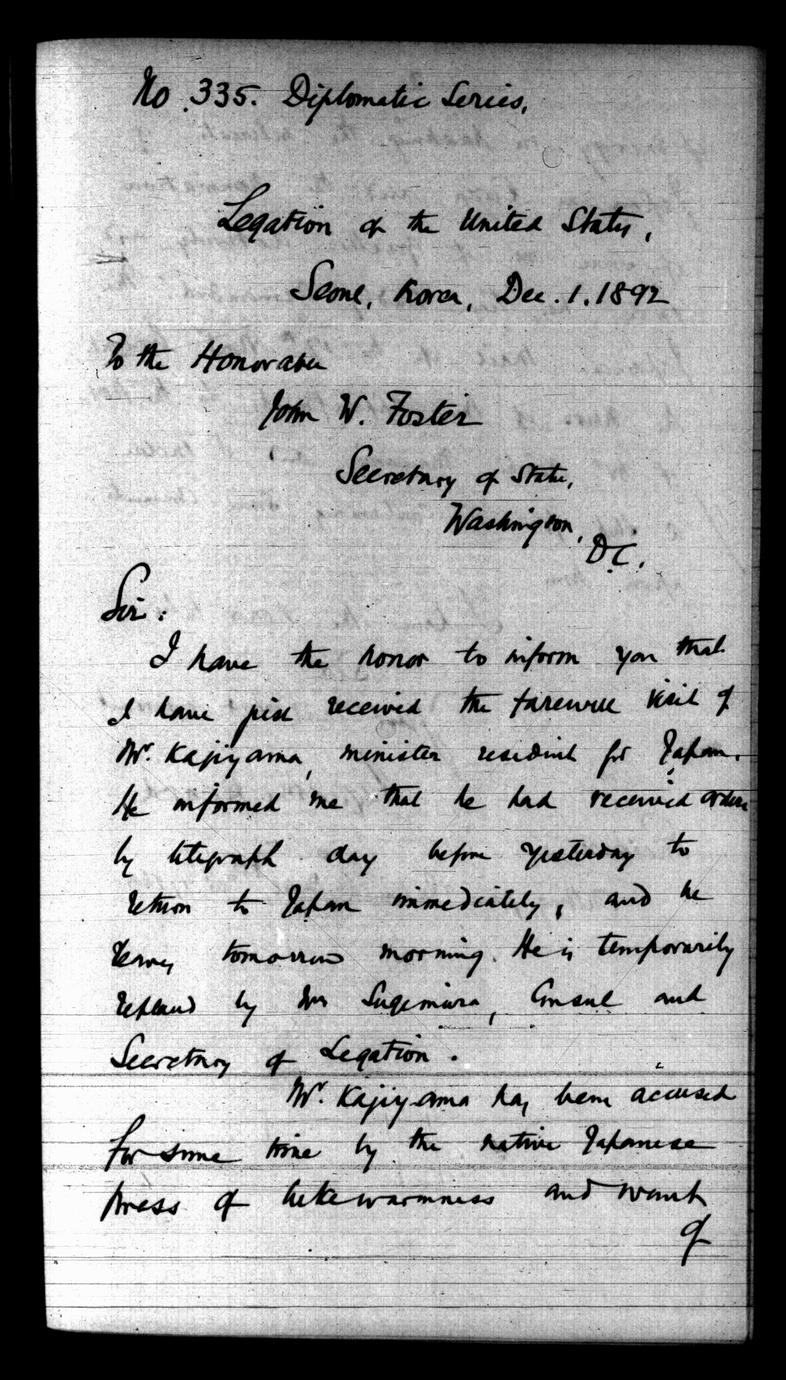 No 335. Diplomatic Series.
Legation of the United States,
Seoul, Korea, Dec. 1. 1892
To the Honorable
John W. Foster
Secretary of State,
Washington,
D.C.
Sir:
I have the honor to inform you that
I have just received the farewell visit of
Mr. Kajiyama, minister resident for Japan.
He informed me that he had received orders
by telegraph day before yesterday to
return to Japan immediately, and he
leaves tomorrow morning. He is temporarily
replaced by Mr Sugimura, Consul and
Secretary of Legation.
Mr. Kajiyama has been accused
for some time by the native Japanese
press of lukewarmness and want
of